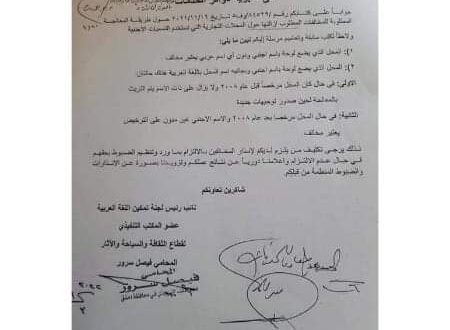 جواباً على كتابكم رقم /١٤٥٢٩/ وف د تاريخ ٢٠٢١/١١/١٦ حول طريقة المعالجة
المطلوبة للمخالفات المطلوب إزالتها حول المحلات التجارية التي تستخدم التسميات الأجنبية
ولاحقاً لكتب سابقة وتعاميم مرسلة إليكم نبين ما يلي:
١): المحل الذي يضع لوحة باسم أجنبي دون أي اسم عربي يعتبر مخالف
٢): المحل الذي يضع لوحة باسم أجنبي وبجانبه اسم المحل باللغة العربية فهناك حالتان:
الأولى: في حال كان المحل مرخصاً قبل عام ٢٠٠٨ ولا يزال على ذات الاسم يتم التريث
بالمعالجة لحين صدور توجيهات جديدة
الثانية: في حال المحل مرخصاً بعد عام ٢٠٠٨ والاسم الأجنبي غير مدون على الترخيص
يعتبر مخالف
لذلك يرجى تكليف من يلزم لديكم لإنذار المخالفين بالالتزام بما ورد وتنظيم الضبوط بحقهم
في حال عدم الالتزام وإعلامنا دورياً عن نتائج عملكم وتزويدنا بصورة عن الإنذارات
والضبوط المنظمة من قبلكم
شاكرين تعاونكم
نائب رئيس لجنة تمكين اللغة العربية
عضو المكتب التنفيذي
لقطاع الثقافة والسياحة والآثار
المحامي فيصل سرور
المحامي
فيصل سرور